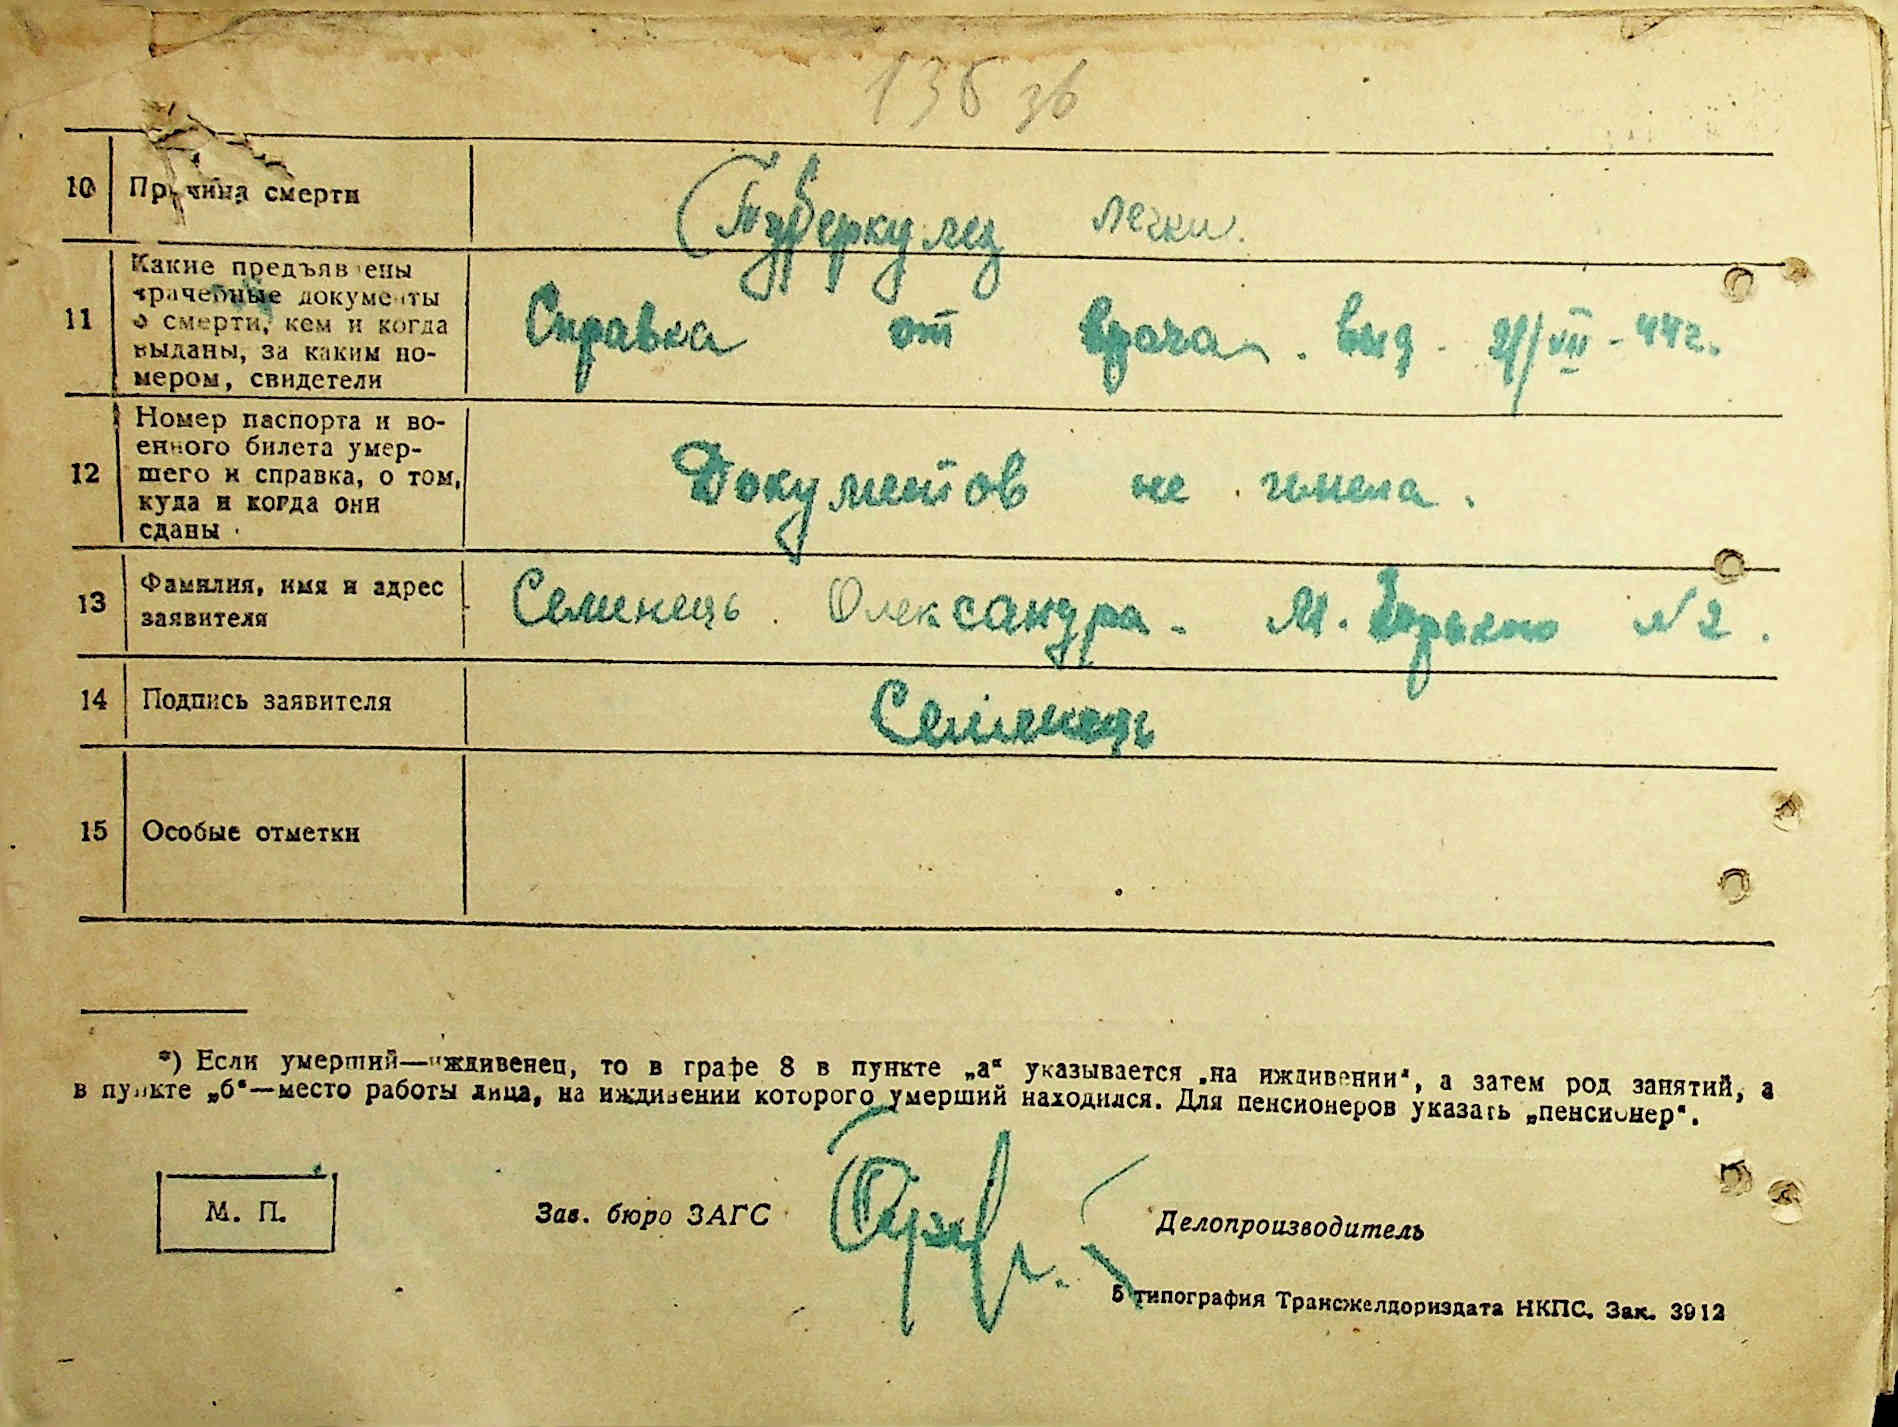 136 зв
10 Причина смерти Туберкулез легких.
11 Какие предъявлены
врачебные документы
о смерти, кем и когда
выданы, за каким но-
мером, свидетели
Справка от врача. выд. /VII-44г.
12 Номер паспорта и во-
енного билета умер-
шего и справка, о том,
куда и когда они
сданы
Документов не имела.
13 Фамилия, имя и адрес
заявителя
Семенець. Олександра. М. Горького №2.
14 Подпись заявителя Семенець
15 Особые отметки
*) Если умерший—иждивенец, то в графе 8 в пункте „а“ указывается „на иждивении“, а затем род занятий, а
в пункте „б“—место работы лица, на иждивении которого умерший находился. Для пенсионеров указать „пенсионер“.
М. П. Зав. бюро ЗАГС Делопроизводитель
5 типография Трансжелдориздата НКПС. Зак. 3912